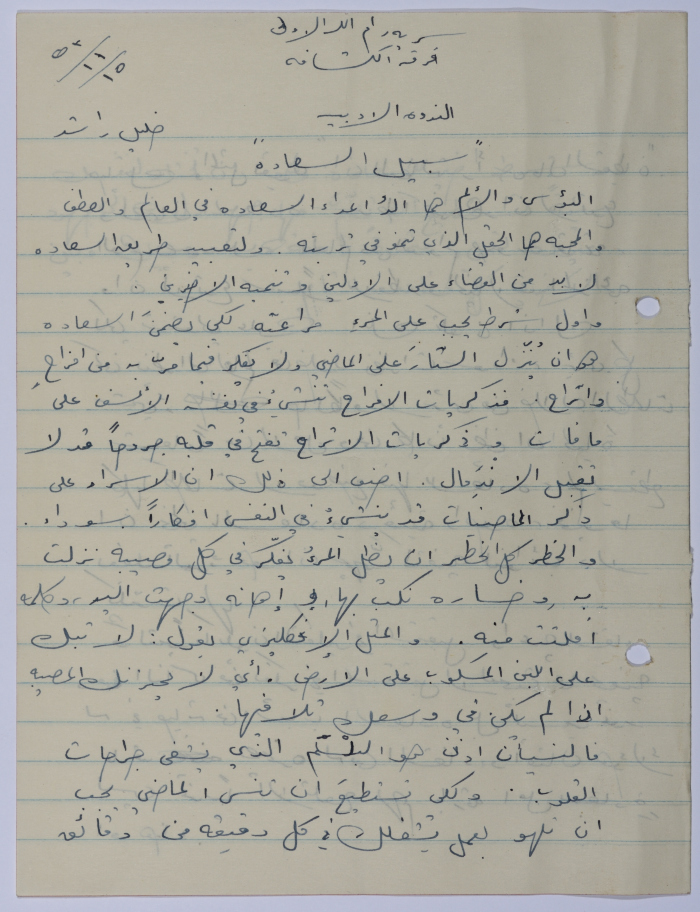 سرية رام الله الاولى
فرقة الكشافه
١٥/١١/٥٢
الندوه الادبيه
خليل راشد
"سبيل السعاده"
البؤس والألم هما الدُ اعداء السعاده في العالم والعطف
والمحبه هما الحقل الذي تنمو في تربته. ولتعبيد طريق السعاده
لا بد من القضاء على الاولين وتنميه الاخيرين.
واول شرط يجب على المرءِ مراعته لكي يضمنَ السعاده
هو ان يُنزّل الستارَ على الماضي ولا يفكر فيما مرّ به من افراحٍ
واتراحٍ. فذكريات الافراح تنشيءُ في نفسه الأسف على
ما فات وذكريات الاتراح تفتح في قلبه جروحاً قد لا
تقبل الاندمال. اضف الى ذلك ان الاسراد على
ذكر الماضيات قد ينشيءُ في النفس افكاراً سوداء.
والخطر كل الخطر ان يظل المرءُ يفكّر في كل مصيبه نزلت
به، وخساره نكب بها، و إهانه وجهت اليه، وكلمه
افلتت منه. والمثل الإنكليزي يقول: لا تبك
على اللبن المسكوب على الارض. أي لا تحزنك المصيبه
اذا لم يكن في وسعك تلافيها.
فالنسيان اذن هو البلسم الذي يشفي جراحات
القلوب. ولكي تستطيع ان تنسى الماضي يجب
ان تلهو بعمل يشغلك في كل دقيقه من دقائق